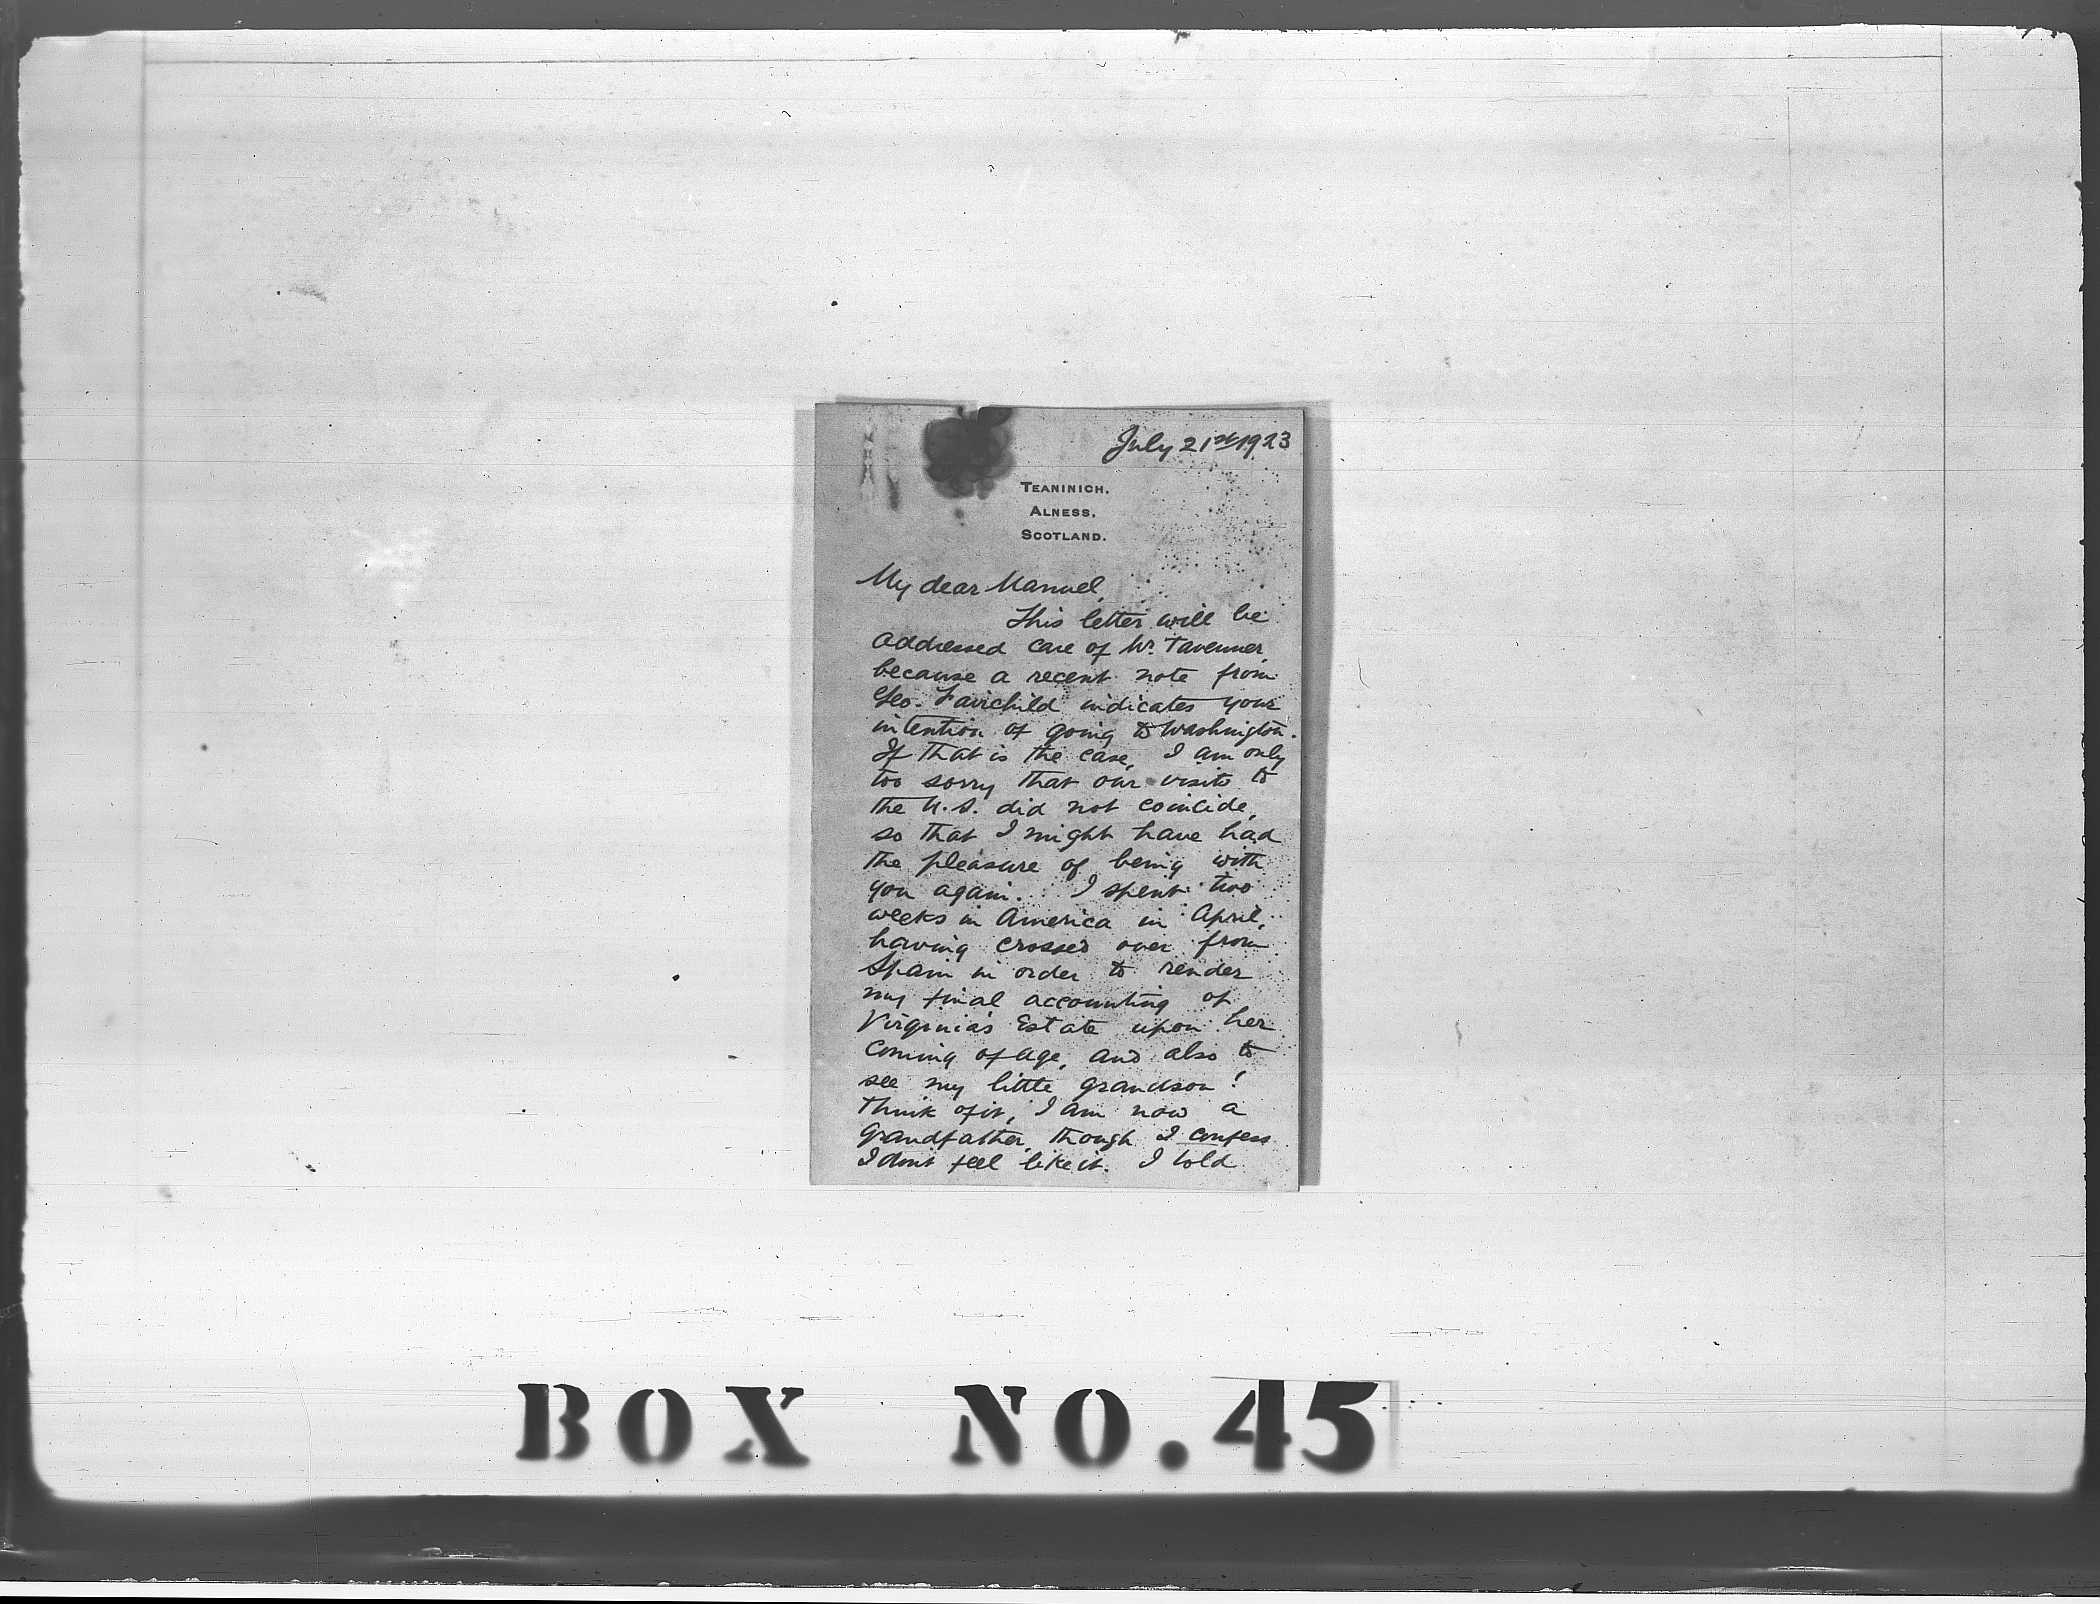 July 21st 1923
TEANINICH,
ALNESS,
SCOTLAND.
My dear Manuel,
This letter will be
addressed care of Mr. Tavenner,
because a recent note from
Geo. Fairchild indicates your
intention of going to Washington.
If that is the case, I am only
too sorry that our visits to
the U.S. did not coincide,
so that I might have had
the pleasure of being with
you again. I spent two
weeks in America in April,
having crossed over from
Spain in order to render
my final accounting of
Virginia's Estate upon her
coming of age, and also to
see my little grandson!
Think of it, I am now a
grandfather, though I confess
I dont feel like it. I told
BOX NO. 45